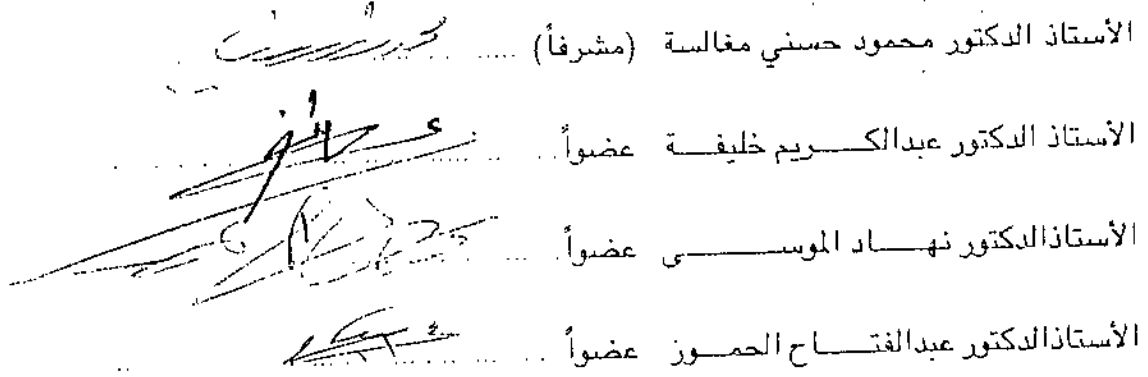 الأستاذ الدكتور محمود حسني مغالسة (مشرفاً) .....
الأستاذ الدكتور عبدالكريم خليفة عضواً
الأستاذالدكتور نهاد الموسى عضواً
الأستاذالدكتور عبدالفتاح الحموز عضواً